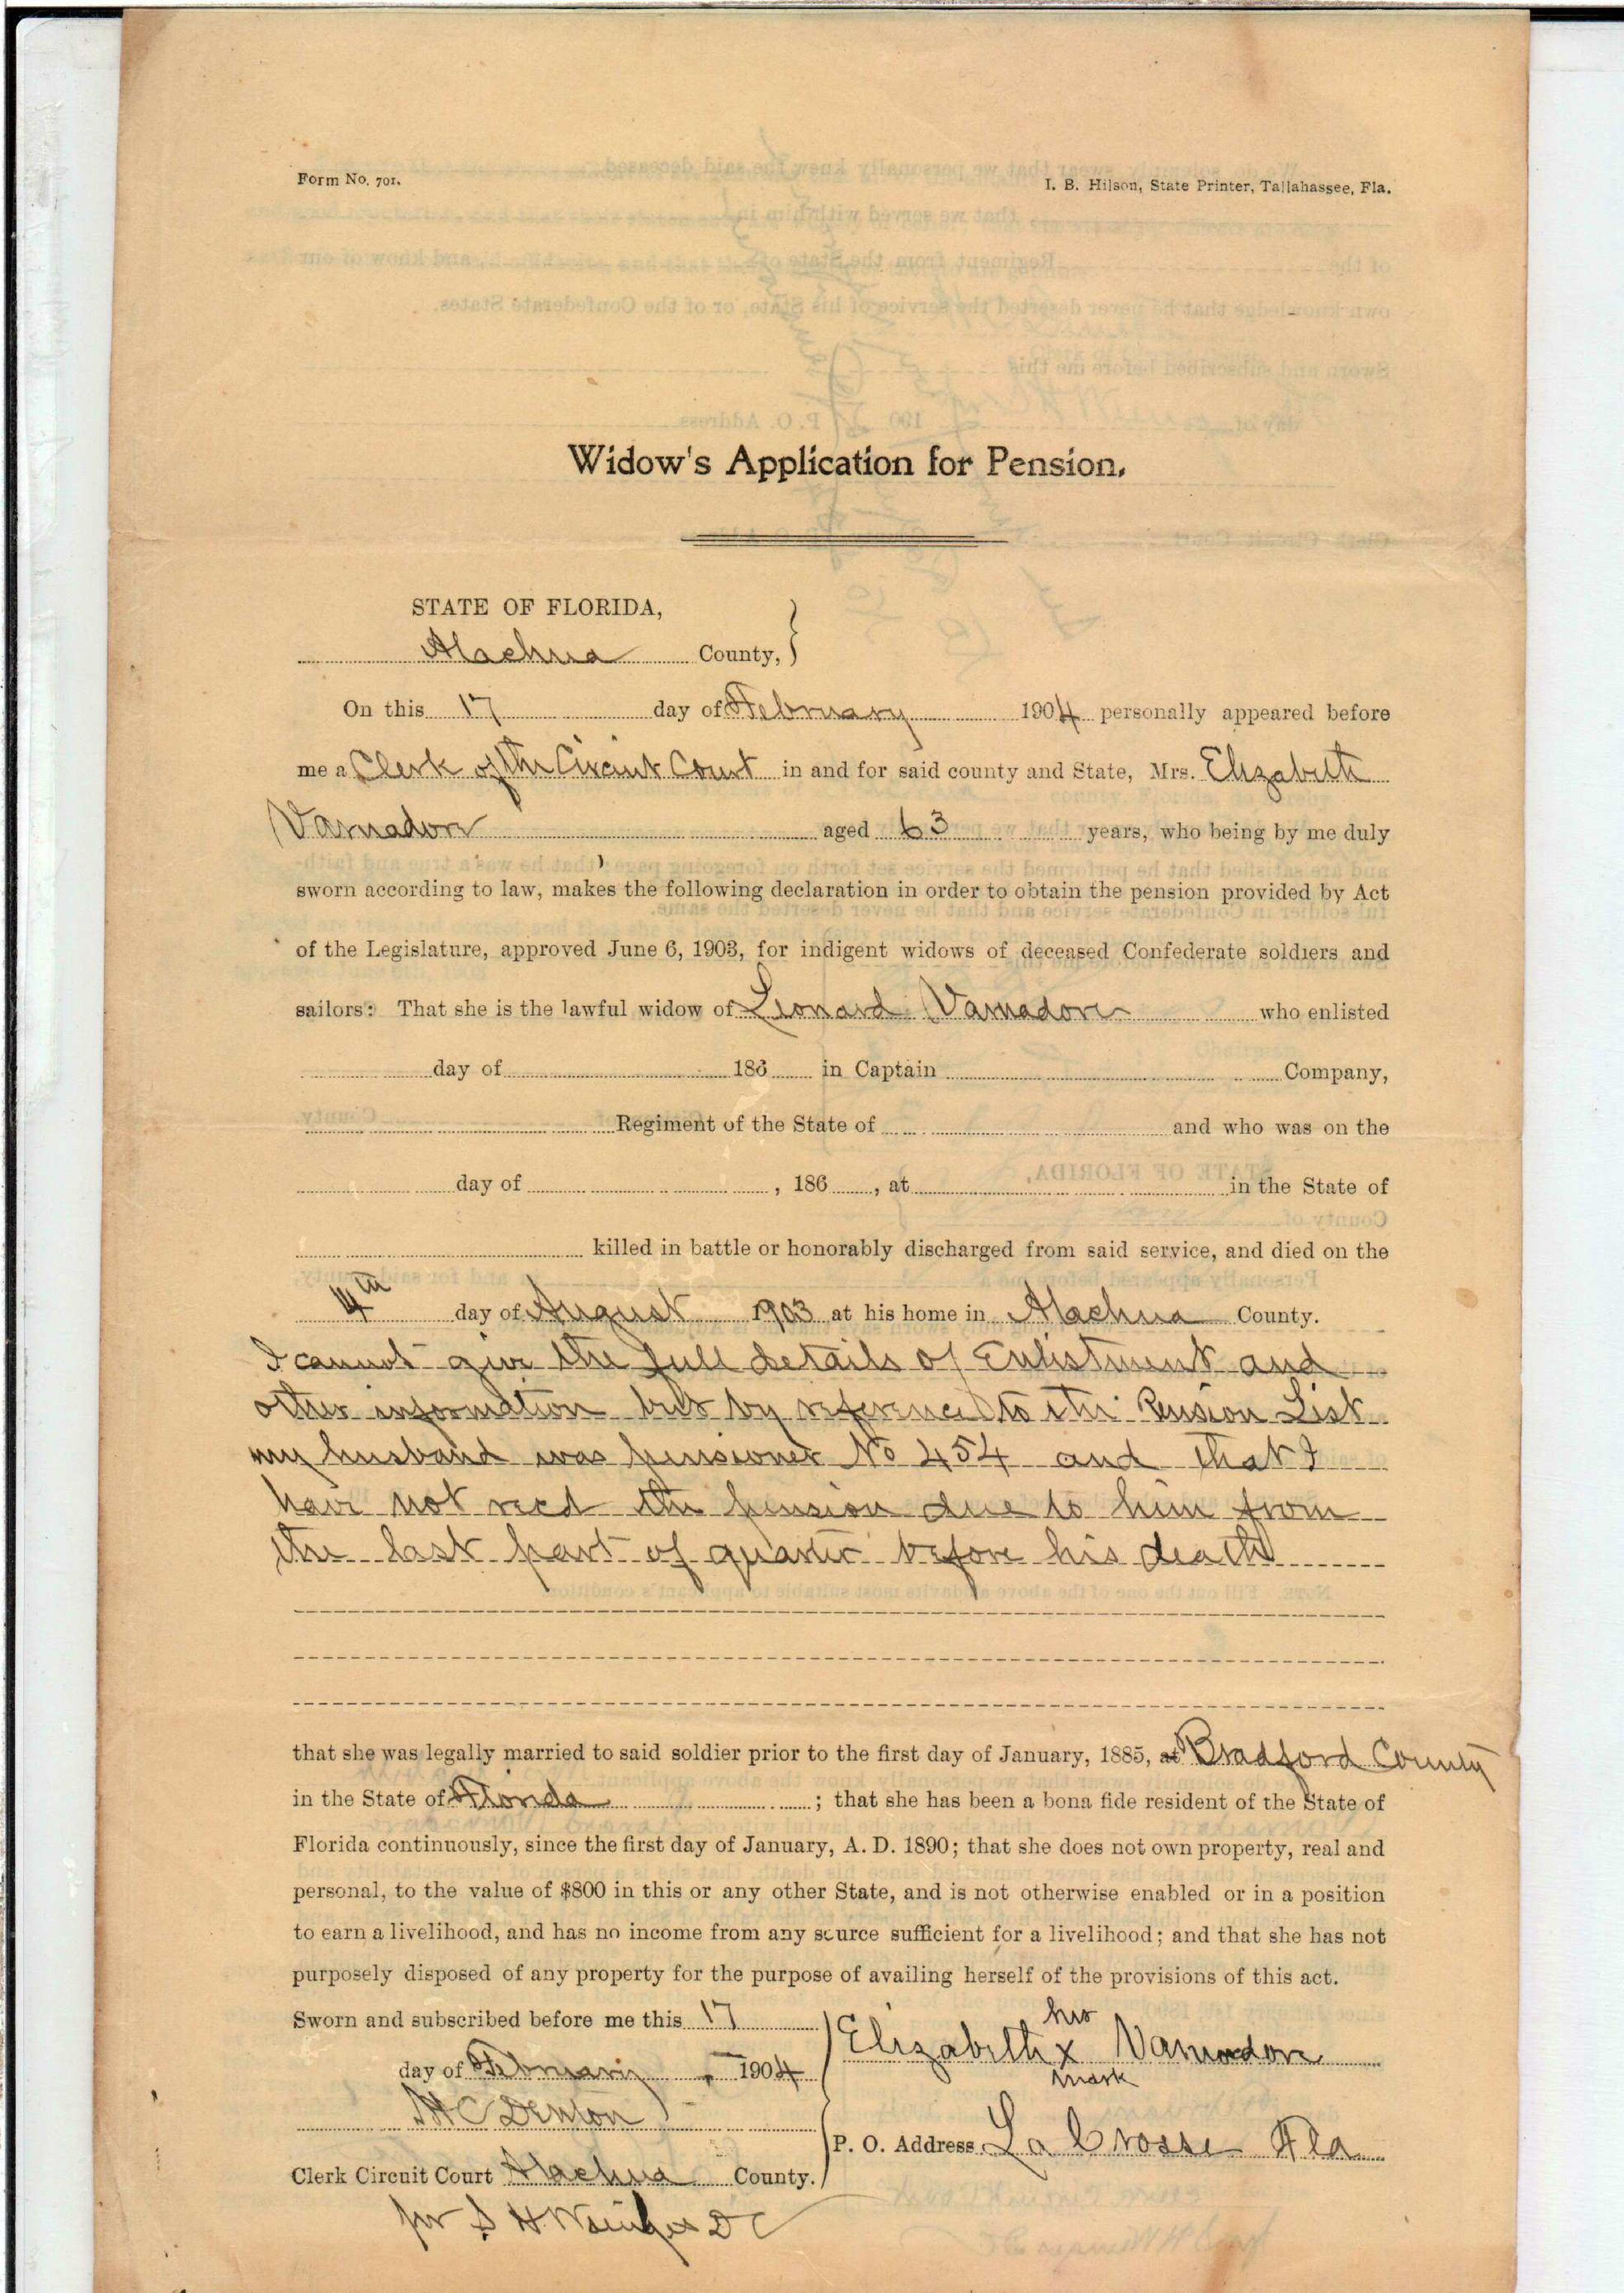 Form No. 701.
I. B. Hilson, State Printer, Tallahassee, Fla.
Widow's Application for Pension.
STATE OF FLORIDA,
Alachua County,
On this 17 day of February 1904 personally appeared before
me a Clerk of the Circuit Court in and for said county and State, Mrs. Elizabeth
Varnadore aged 63 years, who being by me duly
sworn according to law, makes the following declaration in order to obtain the pension provided by Act
of the Legislature, approved June 6, 1903, for indigent widows of deceased Confederate soldiers and
sailors: That she is the lawful widow of Leonard Varnadore who enlisted
day of 186 in Captain Company,
Regiment of the State of and who was on the
day of , 186 , at in the State of
killed in battle or honorably discharged from said service, and died on the
4th day of August 1903 at his home in Alachua County.
I cannot give the full details of Enlistment and
other information but by reference to the Pension List
my husband was pensioner No 454 and that I
have not recd the pension due to him from
the last part of quarter before his death
that she was legally married to said soldier prior to the first day of January, 1885, at Bradford County
in the State of Florida ; that she has been a bona fide resident of the State of
Florida continuously, since the first day of January, A. D. 1890; that she does not own property, real and
personal, to the value of $800 in this or any other State, and is not otherwise enabled or in a position
to earn a livelihood, and has no income from any source sufficient for a livelihood; and that she has not
purposely disposed of any property for the purpose of availing herself of the provisions of this act.
Sworn and subscribed before me this 17
day of February, 1904
H C Denton
Clerk Circuit Court Alachua County.
per S H DC
her
Elizabeth x Varnadore
mark
P. O. Address La Crosse Fla